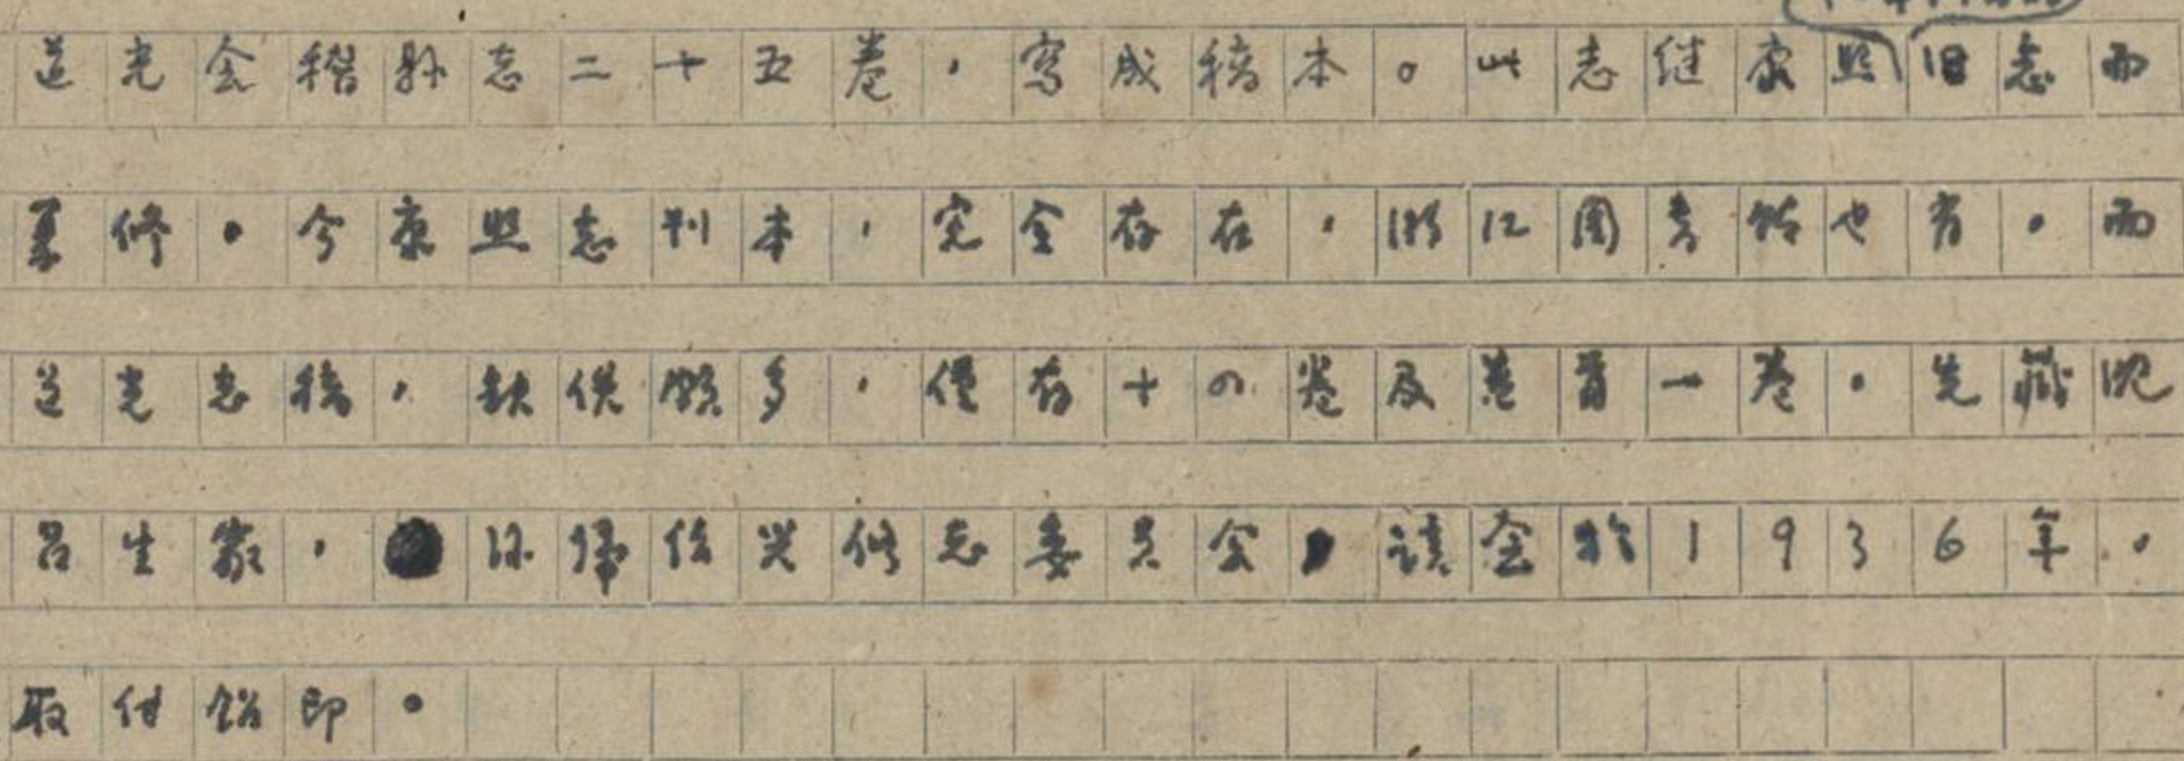 道光会稽县志二十五卷，写成稿本。此志继康熙旧志而
重修。今康熙志刊本，完全存在，浙江图书馆也有。而
道光志稿，缺佚颇多，仅存十四卷及卷首一卷。先藏沈
吕生家，后归绍兴修志委员会，该会于1936年，
取付铅印。